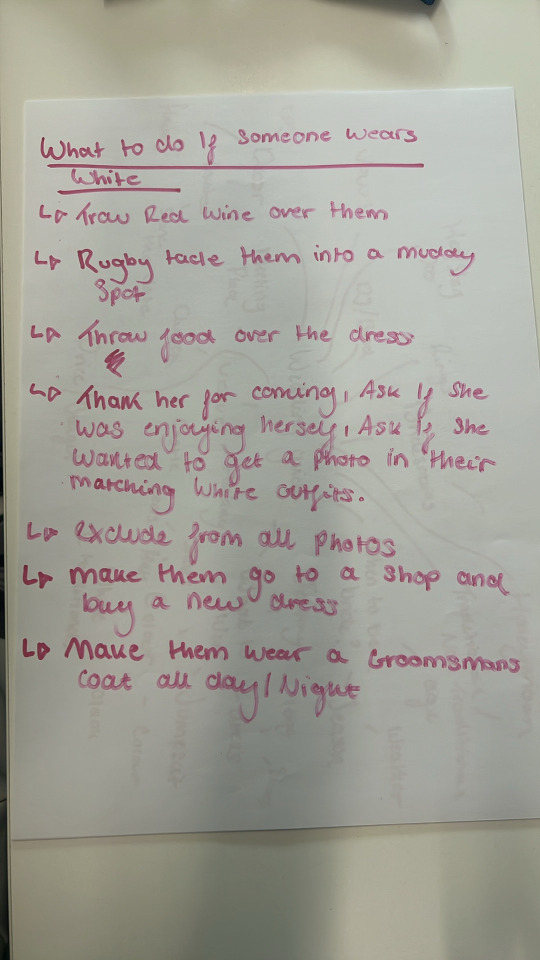 What to do If someone wears
White
↳ Traw Red wine over them
↳ Rugby tacle them into a muddy
Spot
↳ Throw food over the dress
↳ Thank her for coming, Ask If she
was enjoying herself, Ask If she
wanted to get a photo in their
matching white outfits.
↳ exclude from all photos
↳ make them go to a shop and
buy a new dress
↳ Make them wear a Groomsmans
coat all day/Night